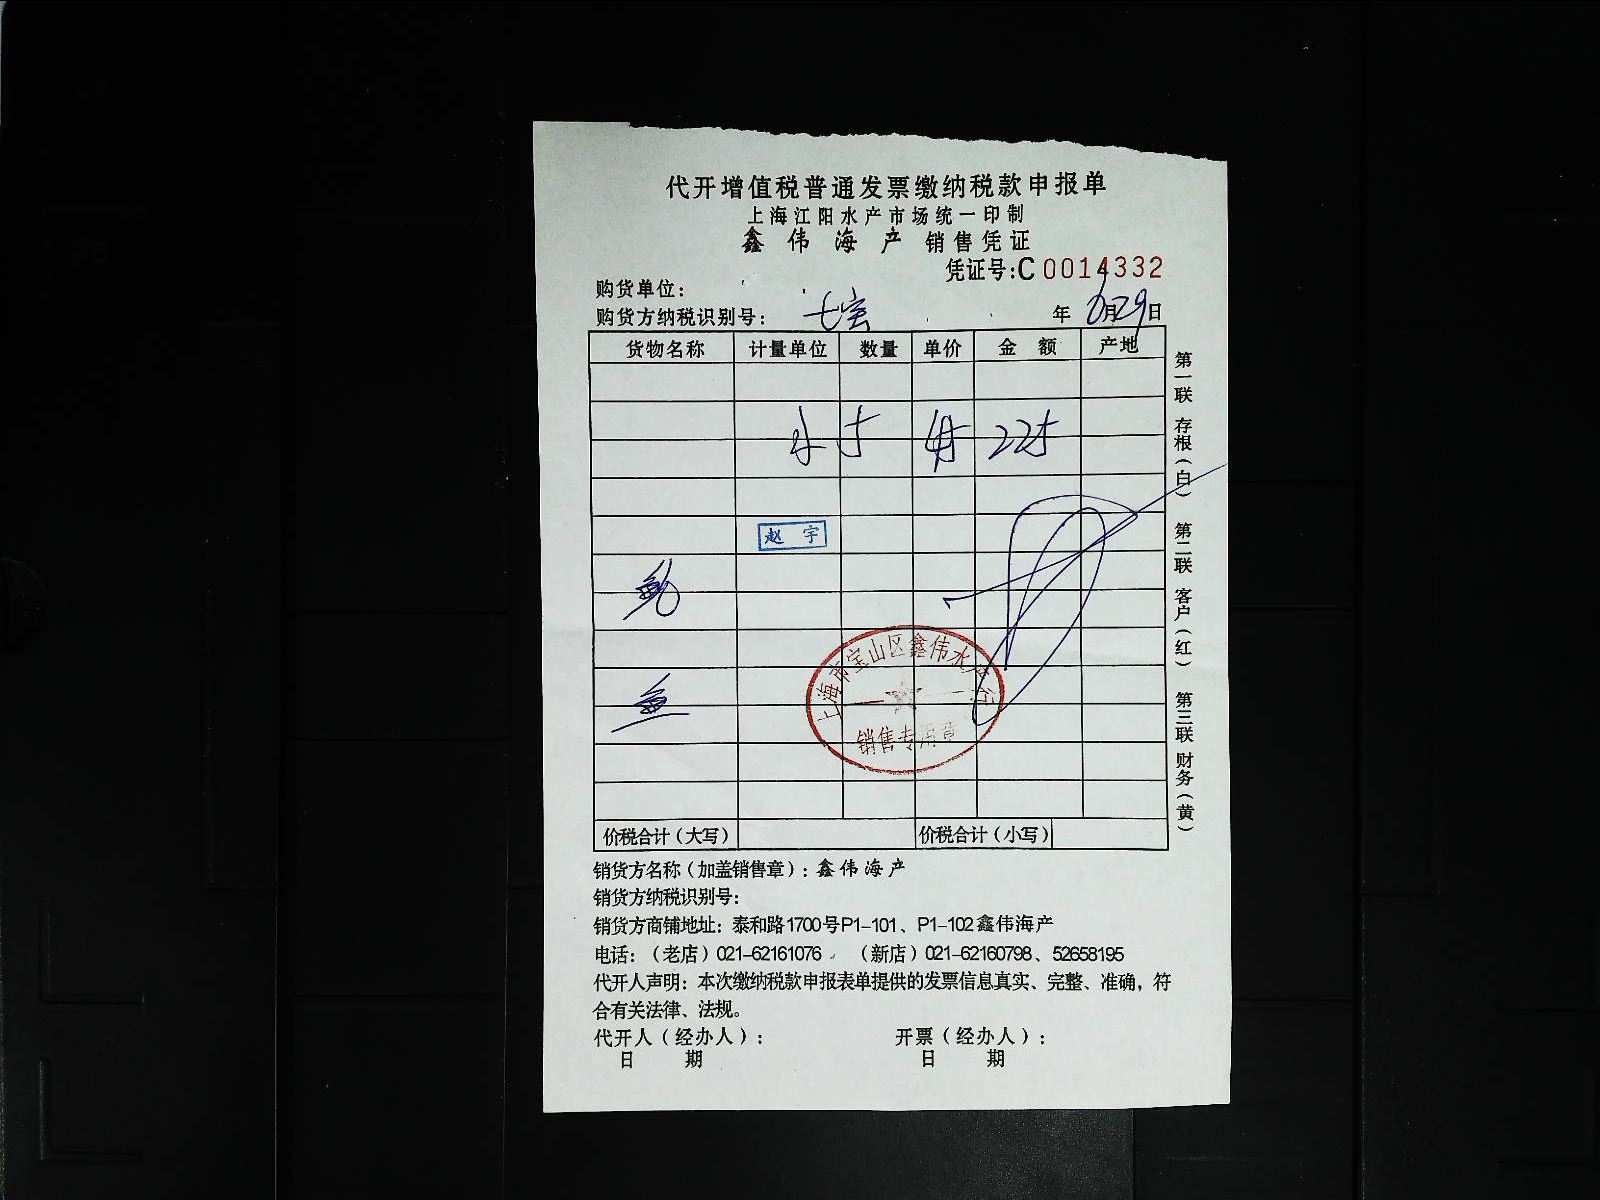 代开增值税普通发票缴纳税款申报单
上海江阳水产市场统一印制
鑫伟海产 销售凭证
凭证号:C 0014332
购货单位:
购货方纳税识别号: 七宝 年 月29日
货物名称 计量单位 数量 单价 金额 产地
5 45 225
赵宇
鱼
上海市宝山区鑫伟水产行
销售专用章
价税合计(大写) 价税合计(小写)
销货方名称(加盖销售章):鑫伟海产
销货方纳税识别号:
销货方商铺地址:泰和路1700号P1-101、P1-102鑫伟海产
电话:(老店)021-62161076 (新店)021-62160798、52658195
代开人声明:本次缴纳税款申报表单提供的发票信息真实、完整、准确,符
合有关法律、法规。
代开人(经办人): 开票(经办人):
日期 日期
第一联 存根(白) 第二联 客户(红) 第三联 财务(黄)